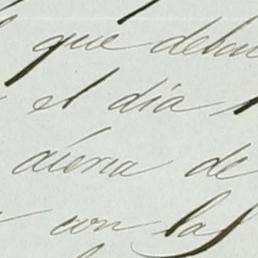 que deben
el día
diena de
con las